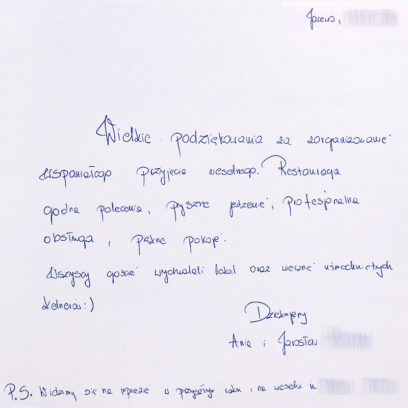 Wielkie podziękowania za zorganizowanie
wspaniałego przyjęcia weselnego. Restauracja
godna polecenia, pyszne jedzenie, profesjonalna
obsługa, piękne pokoje.
Wszyscy goście wychwalali lokal oraz wiecznie uśmiechniętych
kelnerów:)
Dziękujemy
Ania i Jarosław
P.S. Widzimy się na imprezie w przyszłym roku i na weselu u